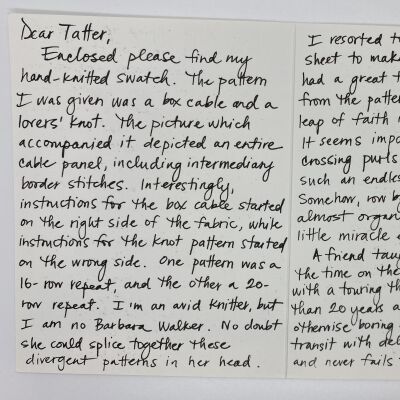 Dear Tatter,
Enclosed please find my
hand-knitted swatch. The pattern
I was given was a box cable and a
lovers' knot. The picture which
accompanied it depicted an entire
cable panel, including intermediary
border stitches. Interestingly,
instructions for the box cable started
on the right side of the fabric, while
instructions for the knot pattern started
on the wrong side. One pattern was a
16-row repeat, and the other a 20-
row repeat. I'm an avid knitter, but
I am no Barbara Walker. No doubt
she could splice together these
divergent patterns in her head.
I resorted
sheet to mak
had a great t
from the patte
leap of faith
It seems impo
crossing purls
such an endles
Somehow, row b
almost organ
little miracle
A friend taug
the time on the
with a touring th
than 20 years a
otherwise boring
transit with del
and never fails